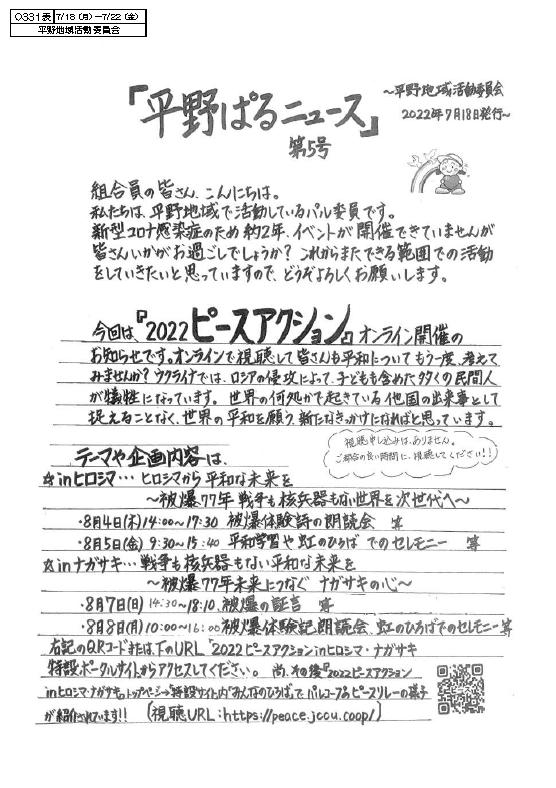 0331表 7/18（月）―7/22（金）
平野地域活動委員会
『平野ぱるニュース』
第5号
～平野地域活動委員会
2022年7月18日発行～
組合員の皆さん、こんにちは。
私たちは、平野地域で活動しているパル委員です。
新型コロナ感染症のため約2年、イベントが開催できていませんが
皆さんいかがお過ごしでしょうか？これからまたできる範囲での活動
をしていきたいと思っていますので、どうぞよろしくお願いします。
今回は、『2022ピースアクション』オンライン開催の
お知らせです。オンラインで視聴して皆さんも平和についてもう一度、考えて
みませんか？ウクライナでは、ロシアの侵攻によって、子どもも含めた多くの民間人
が犠牲になっています。世界の何処かで起きている他国の出来事として
捉えることなく、世界の平和を願う、新たなきっかけになればと思っています。
視聴申し込みは、ありません。
ご都合の良い時間に、視聴してください！！
テーマや企画内容は、
☆inヒロシマ…ヒロシマから平和な未来を
～被爆77年 戦争も核兵器もない世界を次世代へ～
・8月4日(木)14:00～17:30 被爆体験詩の朗読会 等
・8月5日(金) 9:30～15:40 平和学習や虹のひろばでのセレモニー 等
☆inナガサキ…戦争も核兵器もない平和な未来を
～被爆77年未来につなぐ ナガサキの心～
・8月7日(日)14:30～18:10、被爆の証言 等
・8月8日(月)10:00～16:00被爆体験記朗読会、虹のひろばでのセレモニー等
右記のQRコードまたは、下のURL “2022ピースアクションinヒロシマ・ナガサキ
特設ポータルサイト”からアクセスしてください。尚、その後『2022ピースアクション
inヒロシマ・ナガサキ』トップページ→特設サイト内“みんなのひろば”で、パルコープ・ピースリレーの様子
が紹介されています！！ (視聴URL:https://peace.jccu.coop/)